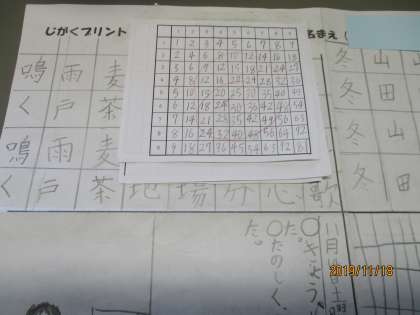 じがくプリント
なまえ（
鳴 雨 麦
く 戸 茶
鳴 雨 麦
く 戸 茶 地 場 分 心 歌
冬 山
冬 田
冬 山
冬 田
1 2 3 4 5 6 7 8 9
1 1 2 3 4 5 6 7 8 9
2 2 4 6 8 10 12 14 16 18
3 3 6 9 12 15 18 21 24 27
4 4 8 12 16 20 24 28 32 36
5 5 10 15 20 25 30 35 40 45
6 6 12 18 24 30 36 42 48 54
7 7 14 21 28 35 42 49 56 63
8 8 16 24 32 40 48 56 64 72
9 9 18 27 36 45 54 63 72 81
○きょう、
た。
○たのしく、
た。
2019/11/18